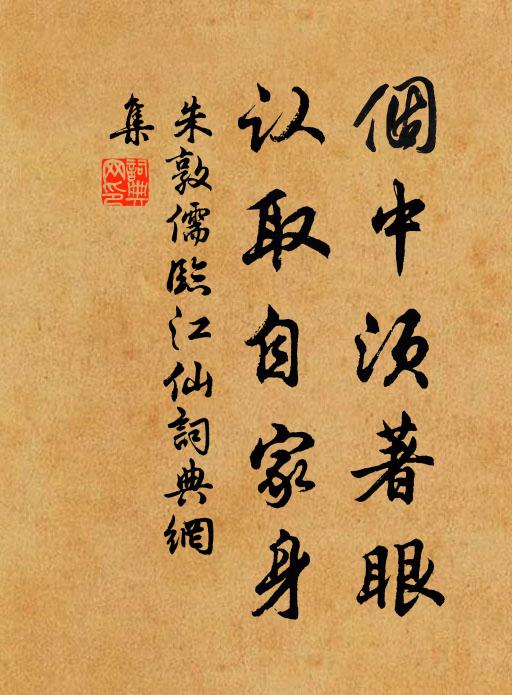 個中須著眼
认取自家身
朱敦儒臨江仙詞典網
集
詞典網印